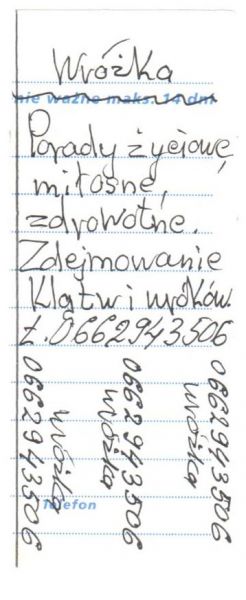 Wróżka
nie ważne maks. 14 dni
Porady życiowe,
miłosne,
zdrowotne.
Zdejmowanie
Klątw i uroków.
t. 0662943506
0662943506
wróżka
0662943506
wróżka
0662943506
wróżka
Telefon